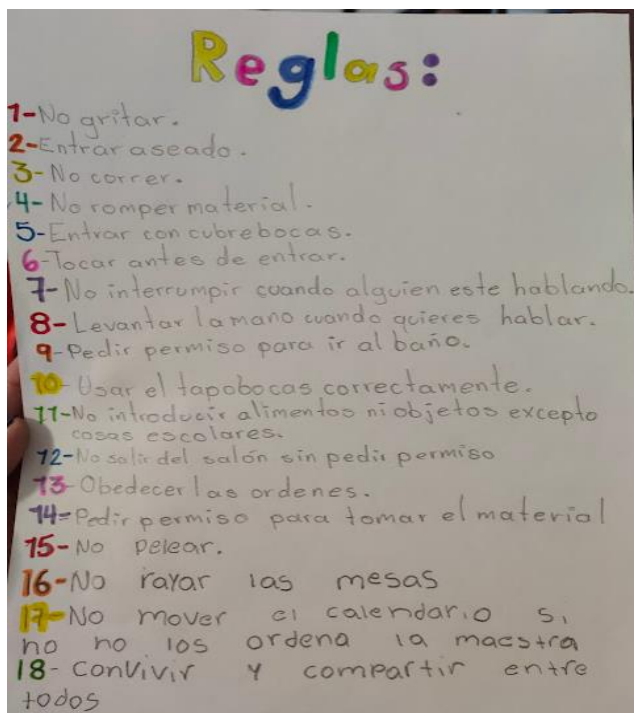 Reglas:
1-No gritar.
2-Entrar aseado.
3-No correr.
4-No romper material.
5-Entrar con cubrebocas.
6-Tocar antes de entrar.
7-No interrumpir cuando alguien este hablando.
8-Levantar la mano cuando quieres hablar.
9-Pedir permiso para ir al baño.
10-Usar el tapobocas correctamente.
11-No introducir alimentos ni objetos excepto
cosas escolares.
12-No salir del salón sin pedir permiso
13-Obedecer las ordenes.
14-Pedir permiso para tomar el material
15-No pelear.
16-No rayar las mesas
17-No mover el calendario si
no no los ordena la maestra
18-convivir y compartir entre
todos